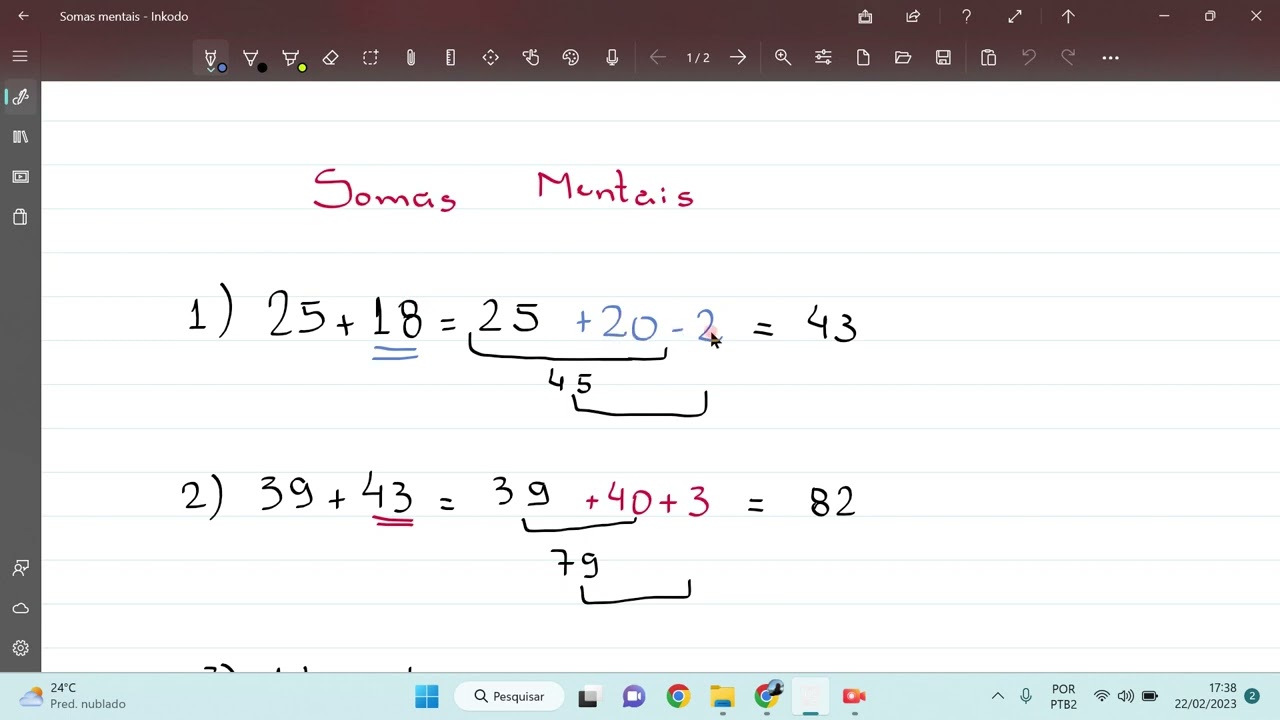 Somas mentais - Inkodo
1 / 2
Somas Mentais
1) 25 + 18 = 25 + 20 - 2 = 43
45
2) 39 + 43 = 39 + 40 + 3 = 82
79
24°C
Pred. nublado
Pesquisar
POR
PTB2
17:38
22/02/2023
2